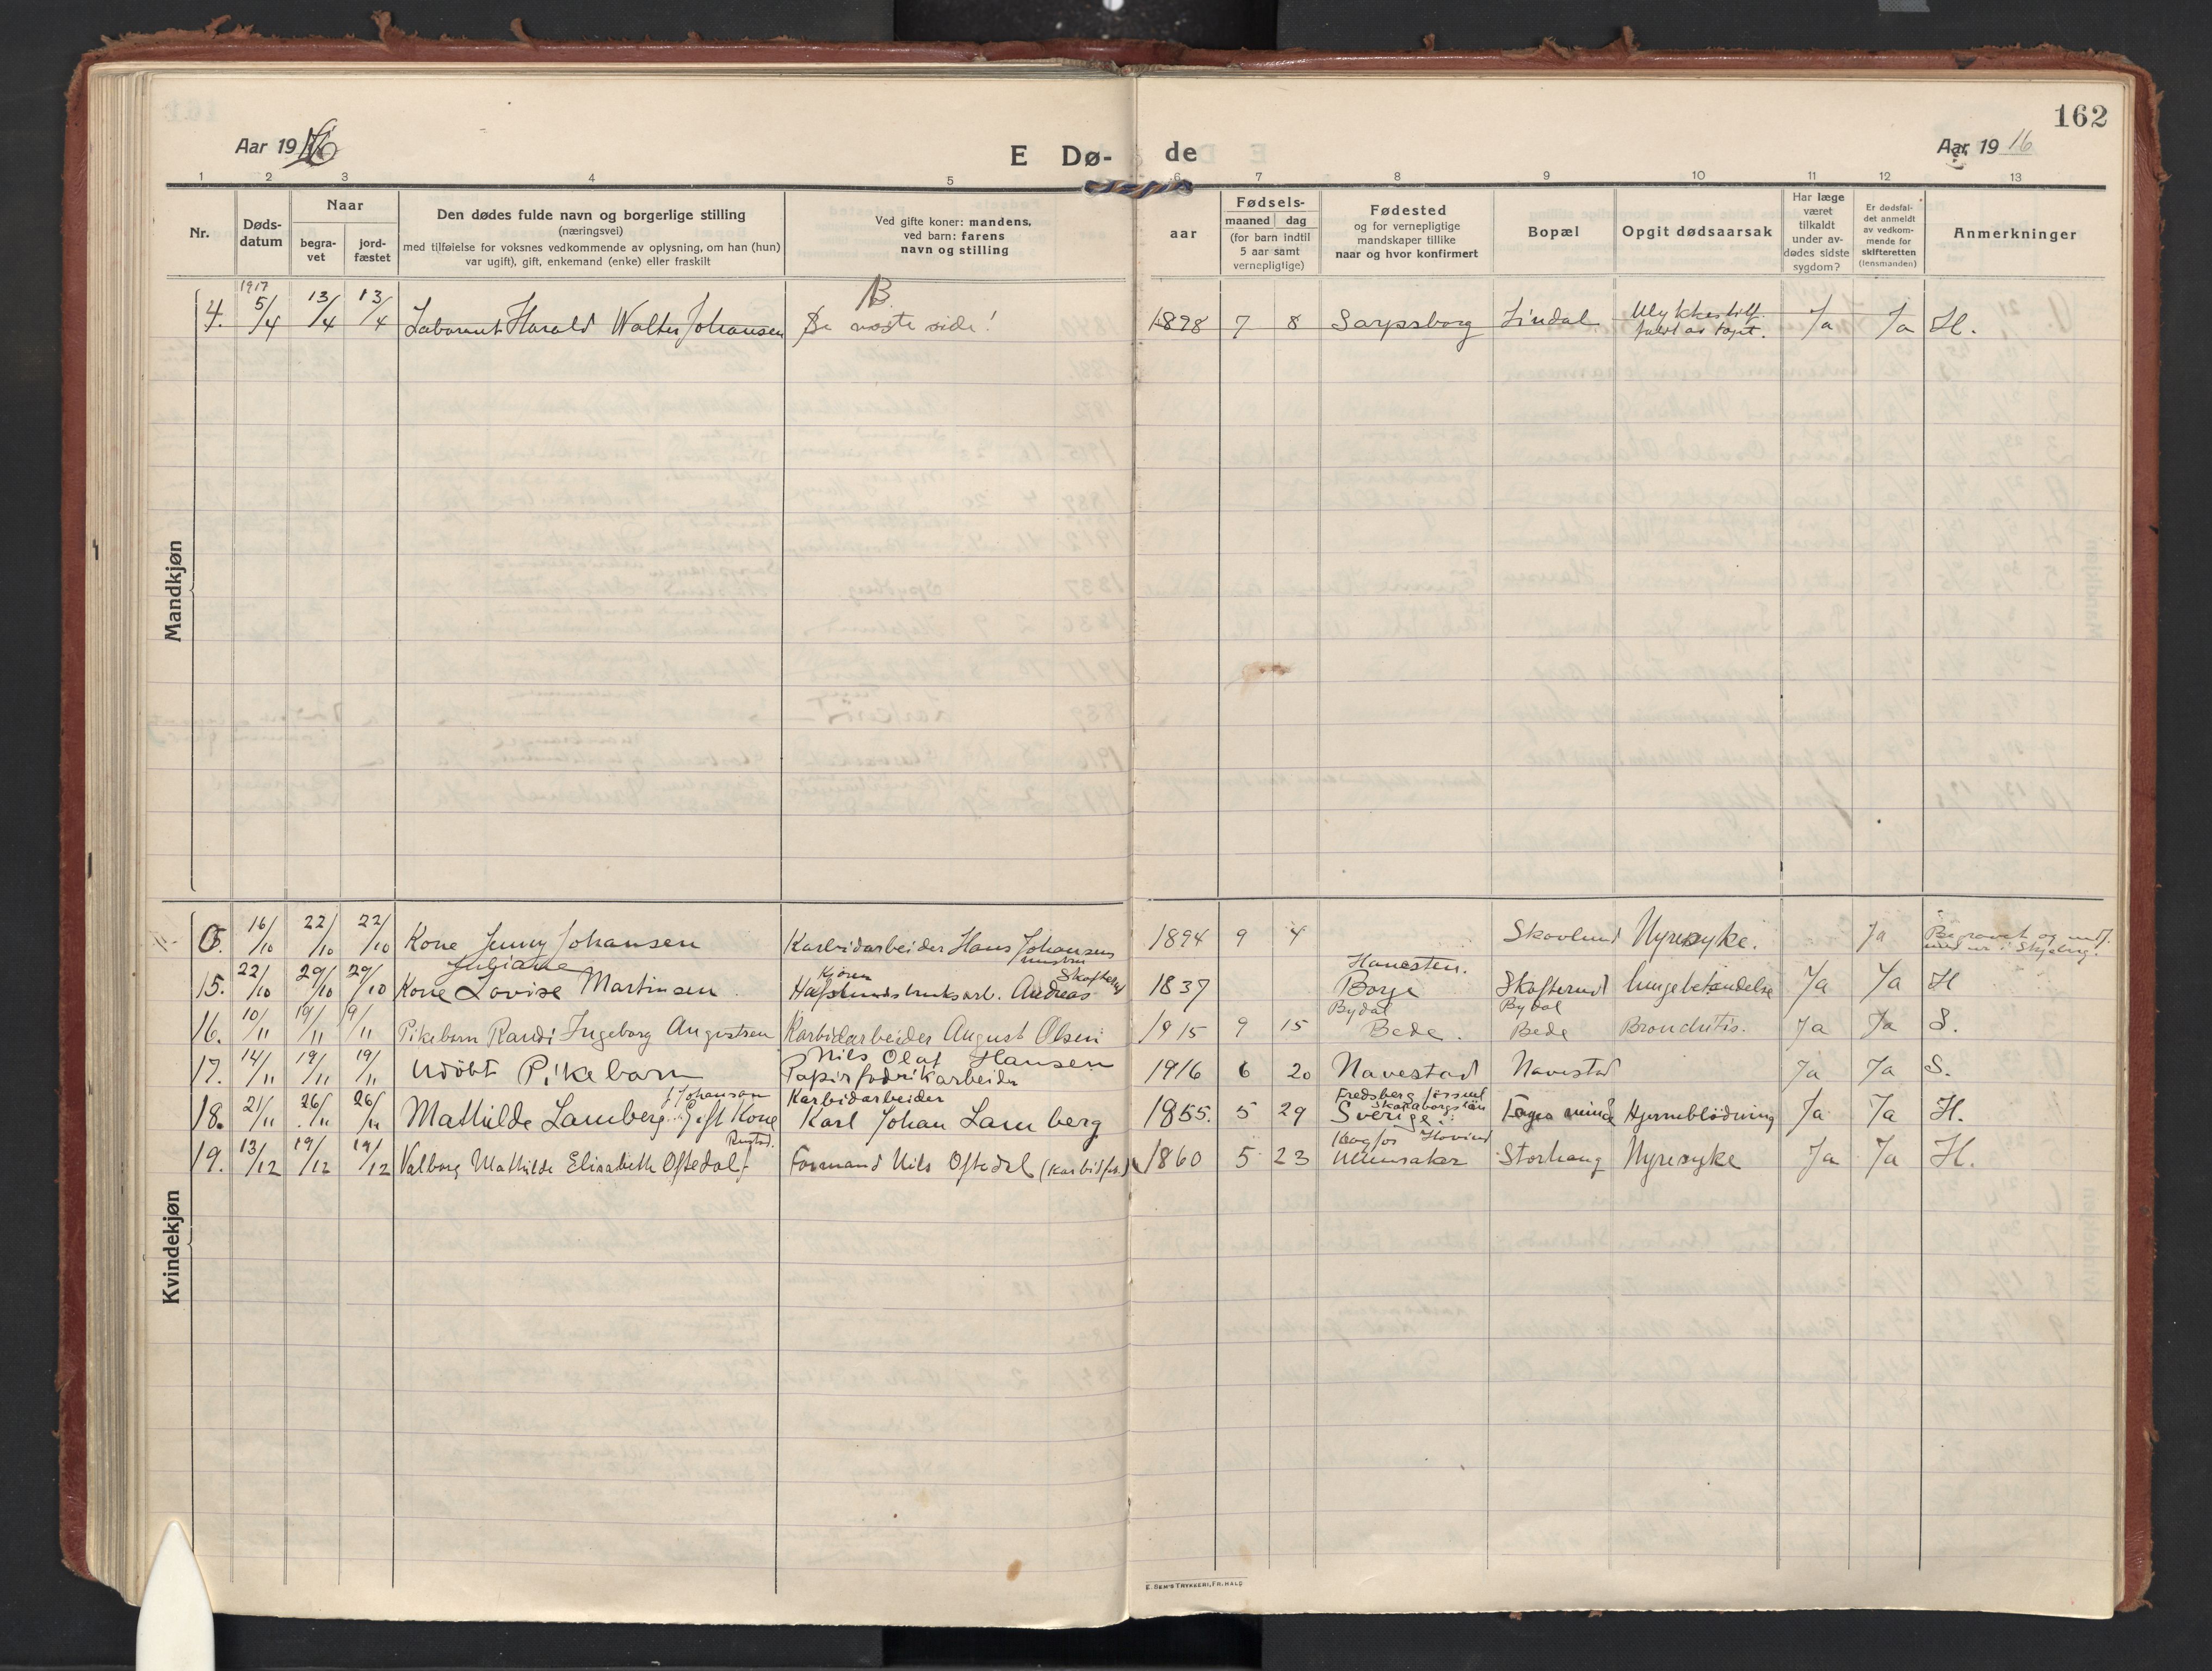 162
Aar 1916
E Dø-
de
Aar 1916
1 2 3 4 5 6 7 8 9 10 11 12 13
Nr.
Døds-
datum
Naar
begra-
vet
jord-
fæstet
Den dødes fulde navn og borgerlige stilling
(næringsvei)
med tilføielse for voksnes vedkommende av oplysning, om han (hun)
var ugift), gift, enkemand (enke) eller fraskilt
Ved gifte koner: mandens,
ved barn: farens
navn og stilling
Fødsels-
aar
maaned dag
(for barn indtil
5 aar samt
vernepligtige)
Fødested
og for vernepligtige
mandskaper tillike
naar og hvor konfirmert
Bopæl
Opgit dødsaarsak
Har læge
været
tilkaldt
under av-
dødes sidste
sygdom?
Er dødsfal-
det anmeldt
av vedkom-
mende for
skifteretten
(lensmanden)
Anmerkninger
Mandkjøn
1917
B
4. 5/4 13/4 13/4 Laborant Harald Walter Johansen Se næste side! 1898 7 8 Sarpsborg Lindal Ulykkestilf. Ja Ja H.
Kvindekjøn
16/10 22/10 22/10 Kone Jenny Johansen Karbidarbeider Hans Johansen 1894 9 4 Skovlund Nyresyke. Ja Begravet og
i Skjeberg.
Juliane
15. 22/10 29/10 29/10 Kone Lovise Martinsen Hafslundsbruksarb. Andreas Skofterud 1837 Hanesten. Borge Skofterud lungebetændelse Ja Ja H
16. 10/11 19/11 19/11 Pikebarn Randi Ingeborg Augustsen Karbidarbeider August Olsen 1915 9 15 Bydal Bede. Bydal Bede Bronchitis. Ja Ja S.
17. 14/11 19/11 19/11 Udöbt Pikebarn Nils Olaf Hansen
Papirfabrikarbeider 1916 6 20 Navestad Navestad Ja Ja S.
18. 21/11 26/11 26/11 Mathilde Lamberg f. Johanson Gift Kone Karbidarbeider
Karl Johan Lamberg 1855. 5 29 Fredsberg
Skaraborgslän
Sverige. Fagerminde Hjerneblödning Ja Ja H.
19. 13/12 19/12 19/12 Valborg Mathilde Elisabeth Oftedal f. Rustad. Formand Nils Oftedal (Karbidfab.) 1860 5 23 Hovind
Ullensaker Storhaug Nyresyke Ja Ja H.
E. SEM'S TRYKKERI, FR.HALD